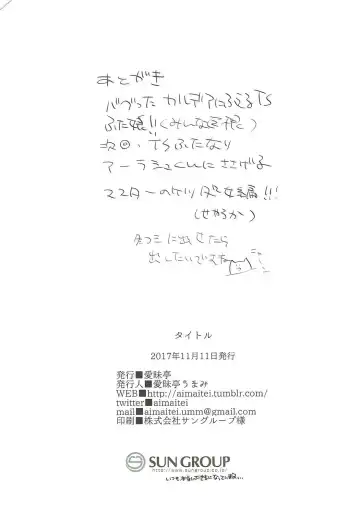 あとがき
バブった カルデアに TS
ふた娘!!(みんな )
次回・TSふたなり
アーラシュくんにささげる
マスターの 編!!!
(せやろか)
に出せたら
出したいですね
タイトル
2017年11月11日発行
発行■愛昧亭
発行人■愛昧亭うまみ
WEB■http://aimaitei.tumblr.com/
twitter■aimaitei
mail■aimaitei.umm@gmail.com
印刷■株式会社サングループ様
SUN GROUP
http://www.sungroup.co.jp/